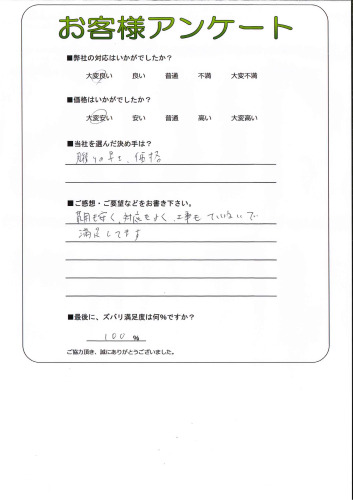 お客様アンケート
■弊社の対応はいかがでしたか?
大変良い 良い 普通 不満 大変不満
■価格はいかがでしたか?
大変安い 安い 普通 高い 大変高い
■当社を選んだ決め手は?
、価格
■ご感想・ご要望などをお書き下さい。
費用も安く、対応もよく、工事もていねいで
満足してます
■最後に、ズバリ満足度は何%ですか?
100 %
ご協力頂き、誠にありがとうございました。